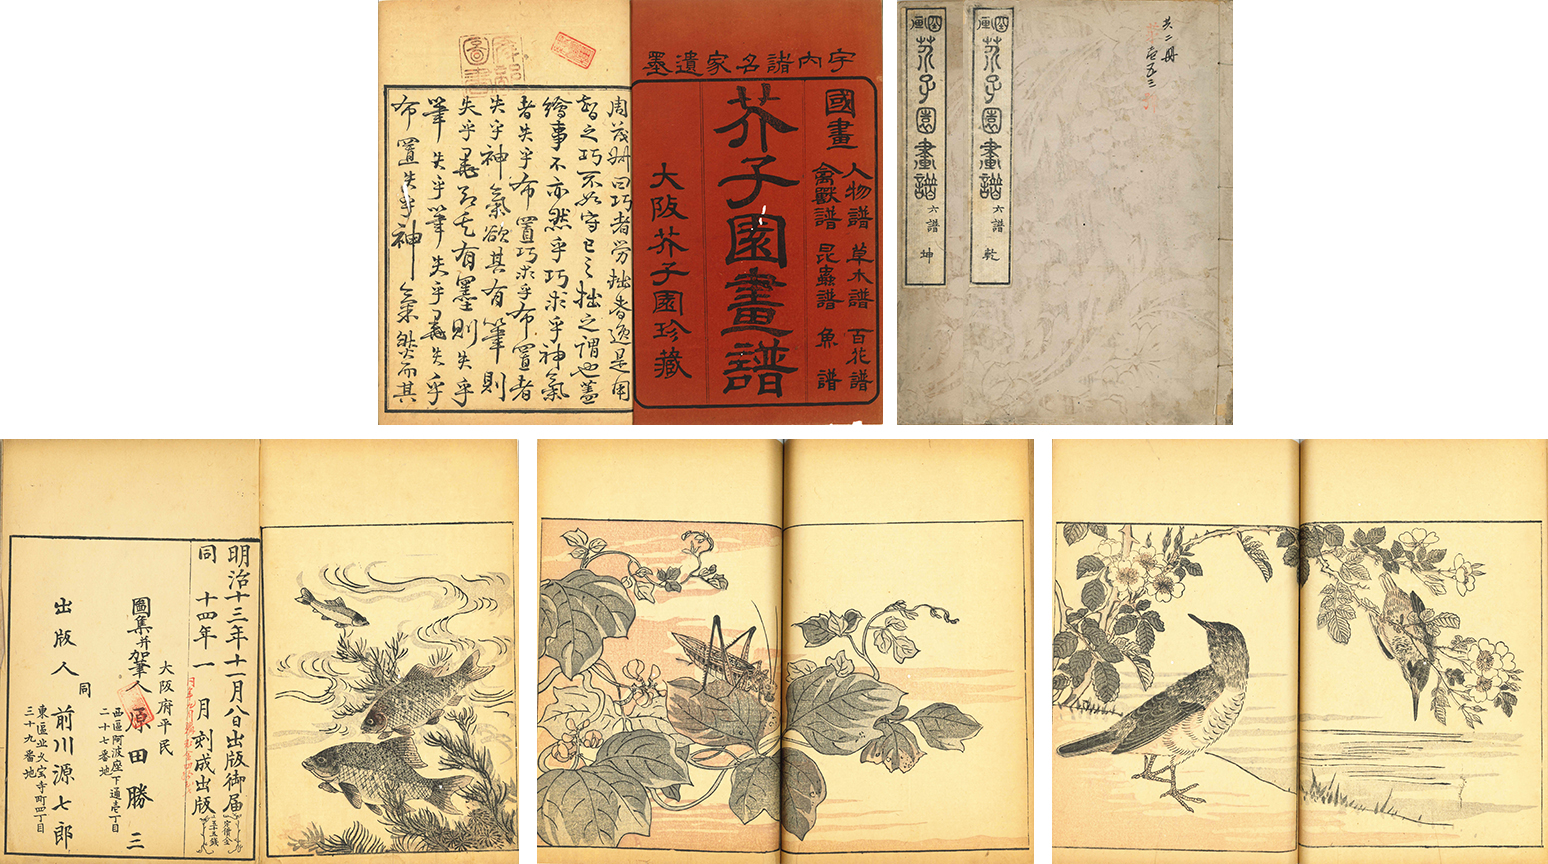 宇内諸名家遺墨
國畫
人物譜 草木譜 百花譜
禽獸譜 昆蟲譜 魚譜
芥子園畫譜
大阪芥子園珍藏
周茂叔曰巧者労拙者逸是用
智之巧不如守己之拙之謂也蓋
繪事不亦然乎巧求乎神氣
者失乎布置巧求乎布置者
失乎神氣欲其有筆則
失乎墨欲其有墨則失乎
筆失乎筆失乎墨失乎
布置失乎神氣然而其
共二冊
芥子園畫譜 六譜 乾
芥子園畫譜 六譜 坤
明治十三年十一月八日出版御届
同 十四年一月刻成出版
定價金
大阪府平民
圖集并加筆人 原田勝三
西區阿波座下通壱丁目
二十七番地
同
出版人 前川源七郎
東區北久宝寺町四丁目
三十九番地